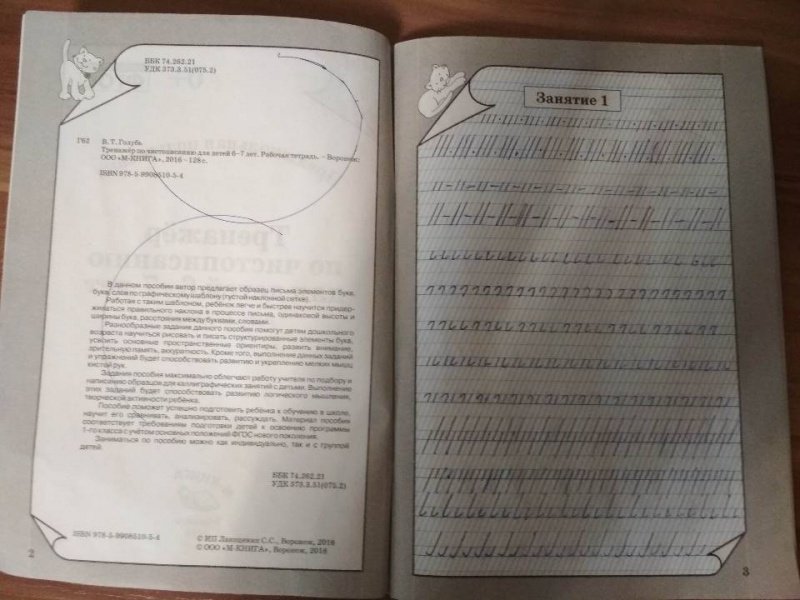 ББК 74.262.21
УДК 373.3.51(075.2)
Г62
В. Т. Голубь.
Тренажёр по чистописанию для детей 6–7 лет. Рабочая тетрадь. – Воронеж:
ООО «М-КНИГА», 2016 – 128 с.
ISBN 978-5-9908510-5-4
В данном пособии автор предлагает образец письма элементов букв,
букв, слов по графическому шаблону (густой наклонной сетке).
Работая с таким шаблоном, ребёнок легче и быстрее научится придер-
живаться правильного наклона в процессе письма, одинаковой высоты и
ширины букв, расстояния между буквами, словами.
Разнообразные задания данного пособия помогут детям дошкольного
возраста научиться рисовать и писать структурированные элементы букв,
усвоить основные пространственные ориентиры, развить внимание,
зрительную память, аккуратность. Кроме того, выполнение данных заданий
и упражнений будет способствовать развитию и укреплению мелких мышц
кистей рук.
Задания пособия максимально облегчают работу учителя по подбору и
написанию образцов для каллиграфических занятий с детьми. Выполнение
этих заданий будет способствовать развитию логического мышления,
творческой активности ребёнка.
Пособие поможет успешно подготовить ребёнка к обучению в школе,
научит его сравнивать, анализировать, рассуждать. Материал пособия
соответствует требованиям подготовки детей к освоению программы
1-го класса с учётом основных положений ФГОС нового поколения.
Заниматься по пособию можно как индивидуально, так и с группой
детей.
ББК 74.262.21
УДК 373.3.51(075.2)
ISBN 978-5-9908510-5-4
© ИП Лакоценин С.С., Воронеж, 2016
© ООО «М-КНИГА», Воронеж, 2016
2
Занятие 1
3